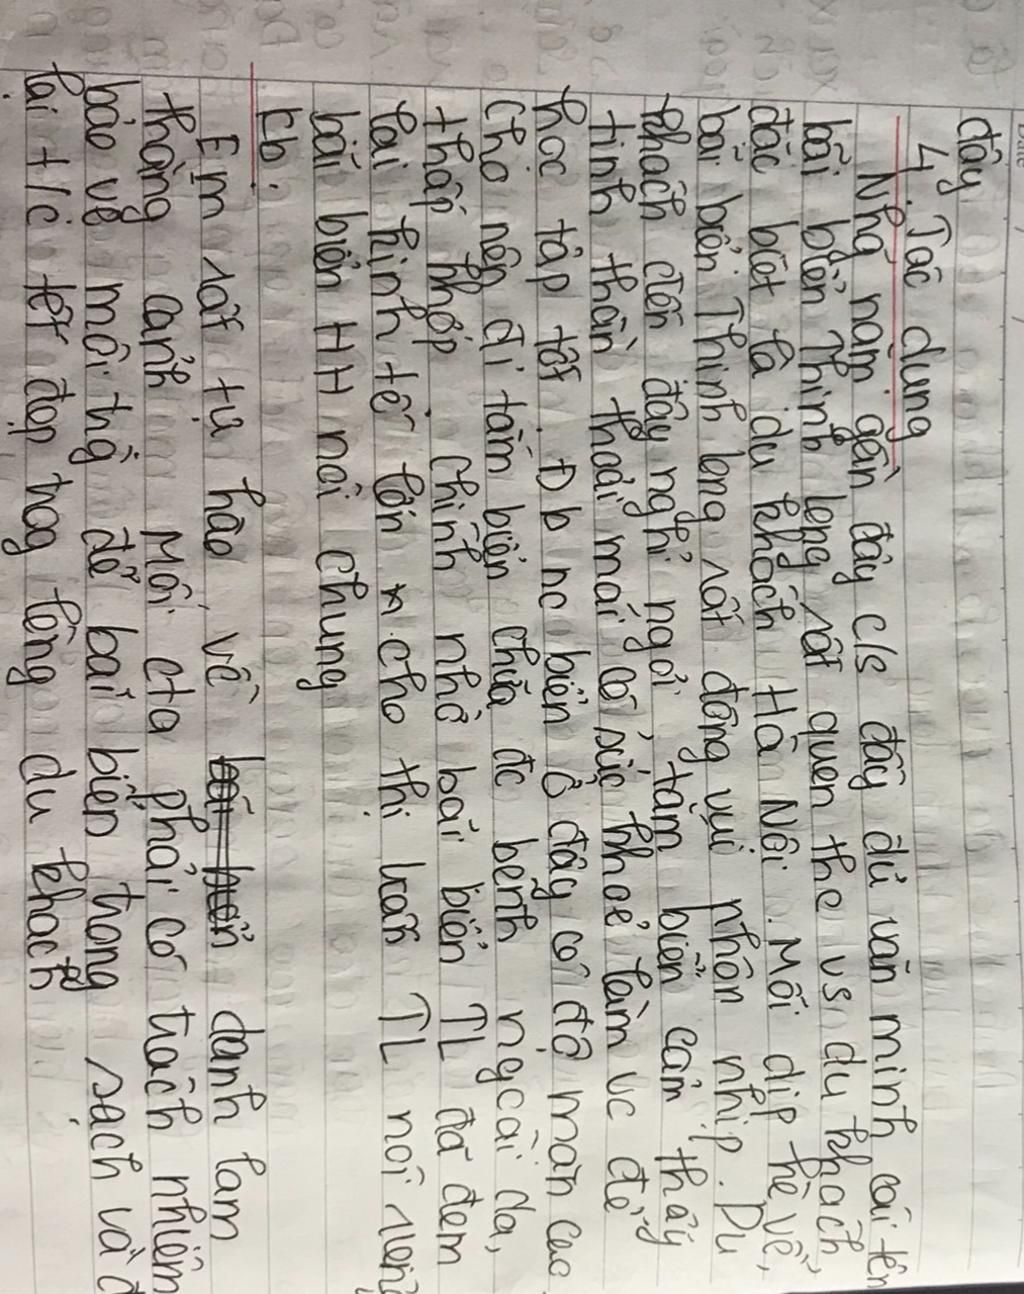 đây
4. Tác dụng
Nhg năm gần đây c/s đầy đủ văn minh cái tên
bãi biển Thịnh Long rất quen thc vs du khách,
đặc biệt là du khách Hà Nội. Mỗi dịp hè về,
bãi biển Thịnh Long rất đông vui nhộn nhịp. Du
khách đến đây nghỉ ngơi, tắm biển cảm thấy
tinh thần thoải mái có sức khoẻ làm vc để
học tập tốt. Đb nc biển ở đây có độ mặn cao
cho nên đi tắm biển chữa đc bệnh ngoài da,
thấp khớp. Chính nhờ bãi biển TL đã đem
lại kinh tế lớn cho thị trấn TL nói riêng
bãi biển HH nói chung
Kb.
Em rất tự hào về danh lam
thắng cảnh. Mỗi cta phải có trách nhiệm
bảo vệ môi trg để bãi biển trong sạch và
lại t/c tốt đẹp trog lòng du khách